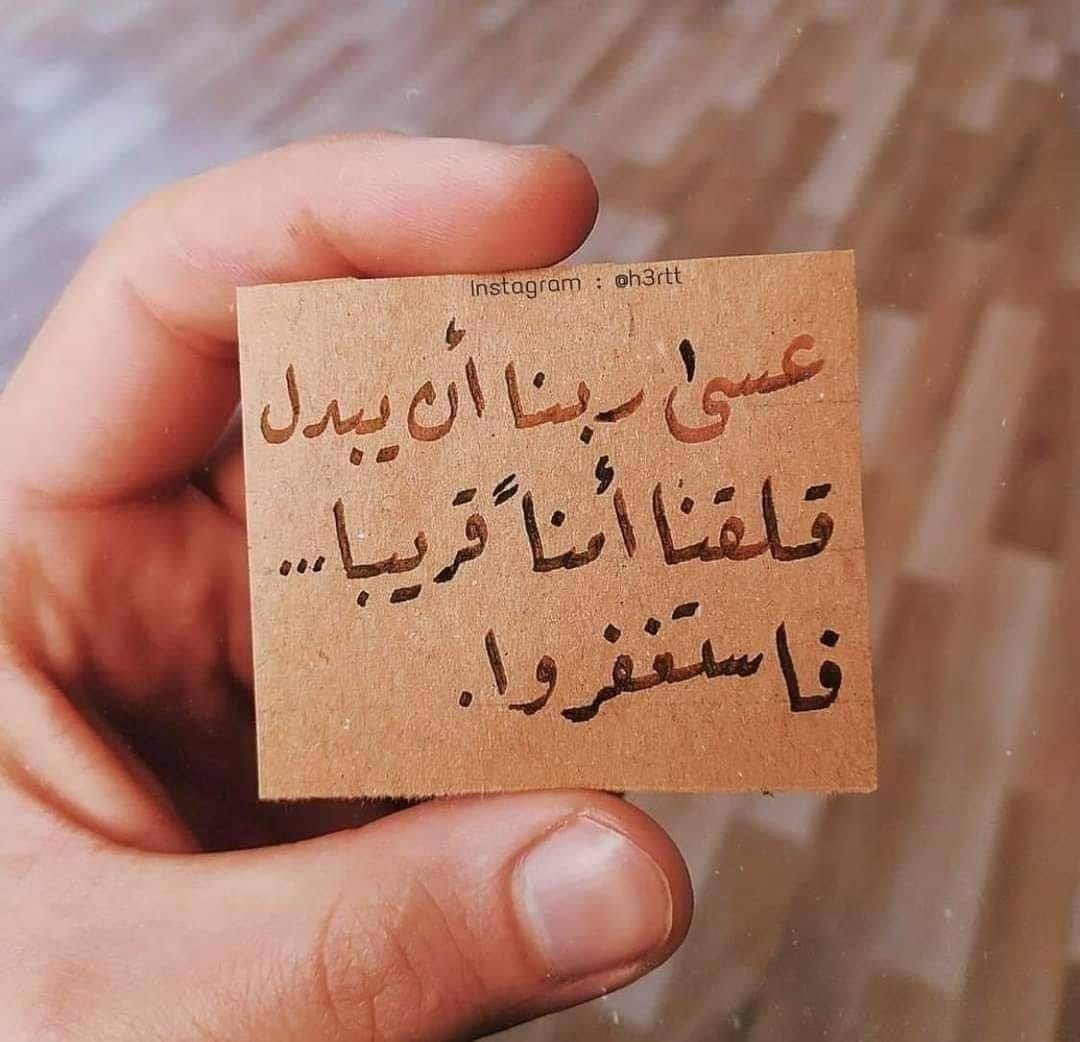 Instagram : @h3rtt
عسىٰ ربنا أن يبدل
قلقنا أمناً قريبا...
فاستغفروا.